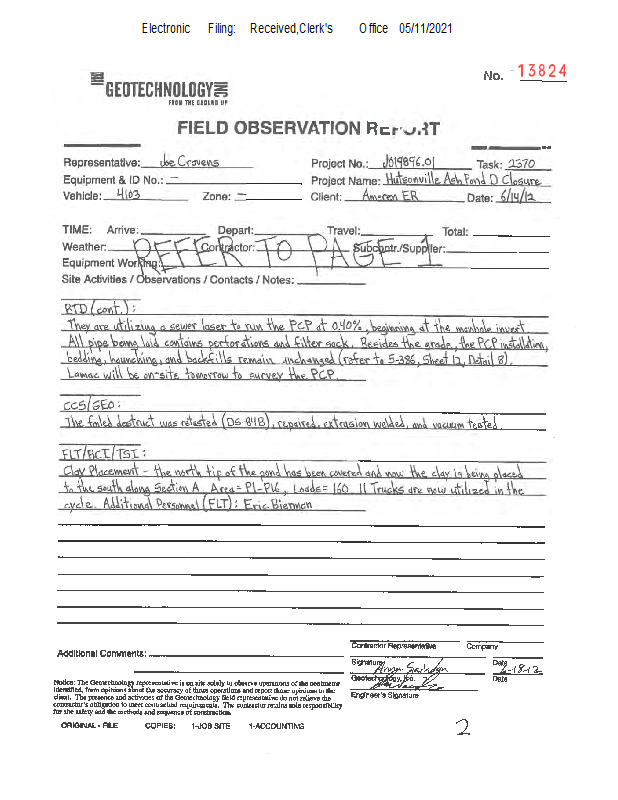 Electronic Filing: Received,Clerk's Office 05/11/2021
No. 13824
GEOTECHNOLOGY INC
FROM THE GROUND UP
FIELD OBSERVATION REPORT
Representative: Joe Cravens Project No.: J019896.01 Task: 2370
Equipment & ID No.: – Project Name: Hutsonville Ash Pond D Closure
Vehicle: 4103 Zone: – Client: Ameren ER Date: 6/14/12
TIME: Arrive: Depart: Travel: Total:
Weather: Contractor: Subcontr./Supplier:
REFER TO PAGE 1
Equipment Working:
Site Activities / Observations / Contacts / Notes:
BTD (cont.):
They are utilizing a sewer laser to run the PCP at 0.40%, beginning at the manhole invert.
All pipe being laid contains perforations and filter sock. Besides the grade, the PCP installation,
bedding, haunching, and backfills remain unchanged (refer to S-396, Sheet 12, Detail 8).
Lamac will be on-site tomorrow to survey the PCP.
CCS/GEO:
The failed destruct was retested (DS-84B), repaired, extrusion welded, and vacuum tested.
FLT/BCI/TSI:
Clay Placement - the north tip of the pond has been covered and now the clay is being placed
to the south along Section A. Area = P1-P16, Loads = 160. 11 Trucks are now utilized in the
cycle. Additional Personnel (FLT): Eric Bierman
Additional Comments:
Contractor Representative Company
Signature Date
6-18-12
Geotechnology, Inc. Date
Engineer's Signature
Notice: The Geotechnology representative is on site solely to observe operations of the contractor
identified, form opinions about the accuracy of those operations and report those opinions to the
client. The presence and activities of the Geotechnology field representative do not relieve the
contractor's obligation to meet contractual requirements. The contractor retains sole responsibility
for site safety and the methods and sequence of construction.
ORIGINAL - FILE COPIES: 1-JOB SITE 1-ACCOUNTING
2